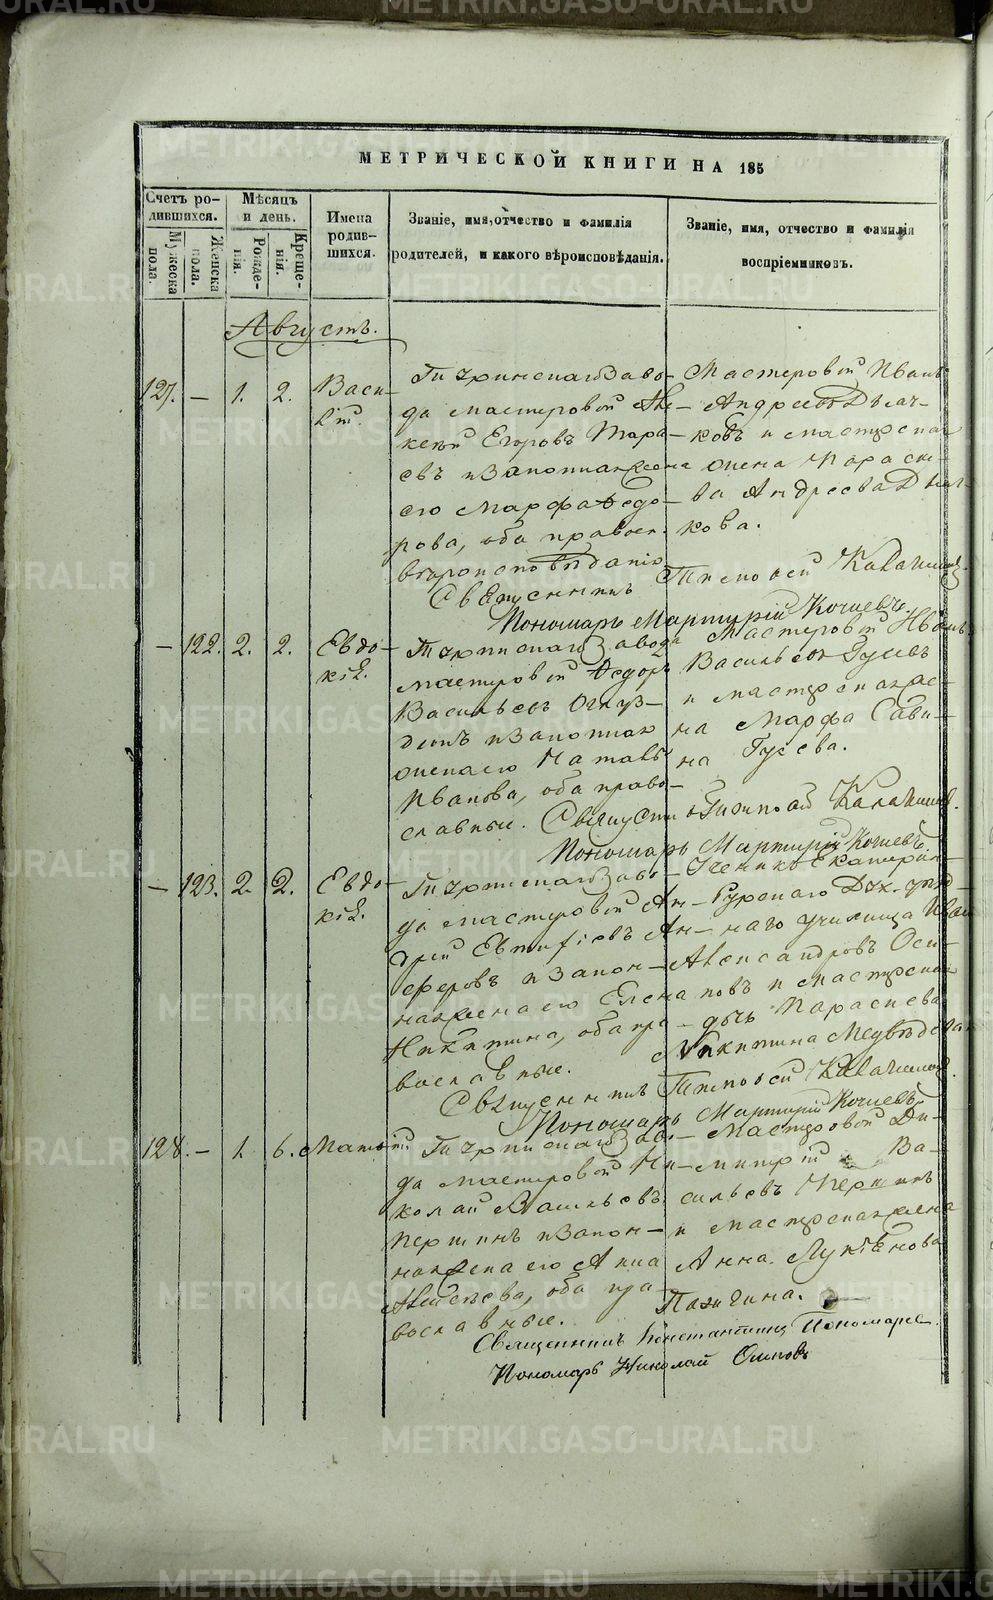 МЕТРИЧЕСКОЙ КНИГИ НА 185
Счетъ ро-
дившихся.
Мужеска
пола.
Женска
пола.
Мѣсяцъ
и день.
Рожде-
нія.
Креще-
нія.
Имена
родив-
шихся.
Званіе, имя, отчество и фамилія
родителей, и какого вѣроисповѣданія.
Званіе, имя, отчество и фамилія
воспріемниковъ.
Августъ.
127. — 1. 2.
Васи-
лій
да мастеровой
Егоровъ Тара-
совъ и законная жена
его Марфа Ѳедо-
рова, оба право-
Мастеровой Иванъ
Андреевъ Дьяч-
ковъ и мастерская
жена Параске-
ва Андреева Дьяч-
кова.
Священникъ
Пономарь Мартирій Кочневъ.
— 122. 2. 2.
Евдо-
кія.
завода
мастеровой Ѳедоръ
Васильевъ
и законная
жена его Наталья
Иванова, оба право-
славные.
Мастеровой Иванъ
Васильевъ Гусевъ
и мастерская же-
на Марфа Сави-
на Гусева.
Пономарь Мартирій Кочневъ.
— 123. 2. 2.
Евдо-
кія.
да мастеровой Ан-
дрей Евтифіевъ Ан-
феровъ и закон-
ная жена его Елена
Никитина, оба пра-
вославные.
Ученикъ Екатерин-
бургскаго Дух. уѣзд-
наго училища Иван
Александровъ Оси-
повъ и мастерская
дочь Параскева
Никитина Медвѣдева
Священникъ
Пономарь Мартирій Кочневъ.
128. — 1. 6.
Матвій.
да мастеровой Ни-
колай Васильевъ
Першинъ и закон-
ная жена его Анна
Алексѣева, оба пра-
вославные.
Мастеровой Ди-
митрій Ва-
сильевъ Першинъ
и мастерская жена
Анна Лукіянова
Священникъ Константинъ Пономаревъ.
Пономарь Николай Осиповъ
METRIKI.GASO-URAL.RU